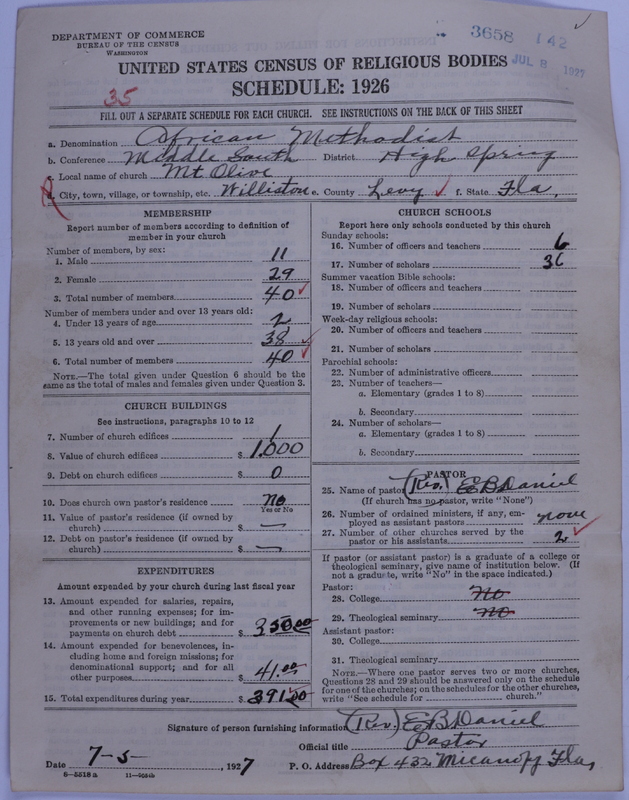 DEPARTMENT OF COMMERCE
BUREAU OF THE CENSUS
WASHINGTON
3658 142
JUL 8 1927
UNITED STATES CENSUS OF RELIGIOUS BODIES
SCHEDULE: 1926
35
FILL OUT A SEPARATE SCHEDULE FOR EACH CHURCH. SEE INSTRUCTIONS ON THE BACK OF THIS SHEET
a. Denomination African Methodist
b. Conference Middle South District High Spring
c. Local name of church Mt Olive
d. City, town, village, or township, etc. Williston e. County Levy f. State Fla,
MEMBERSHIP
Report number of members according to definition of
member in your church
Number of members, by sex:
1. Male 11
2. Female 29
3. Total number of members 40
Number of members under and over 13 years old:
4. Under 13 years of age 2
5. 13 years old and over 38
6. Total number of members 40
NOTE.—The total given under Question 6 should be the
same as the total of males and females given under Question 3.
CHURCH BUILDINGS
See instructions, paragraphs 10 to 12
7. Number of church edifices 1
8. Value of church edifices $ 1,000
9. Debt on church edifices $ 0
10. Does church own pastor's residence no
Yes or No
11. Value of pastor's residence (if owned by
church) $ —
12. Debt on pastor's residence (if owned by
church) $ —
EXPENDITURES
Amount expended by your church during last fiscal year
13. Amount expended for salaries, repairs,
and other running expenses; for im-
provements or new buildings; and for
payments on church debt $ 350.00
14. Amount expended for benevolences, in-
cluding home and foreign missions; for
denominational support; and for all
other purposes $ 41.00
15. Total expenditures during year $ 391.00
CHURCH SCHOOLS
Report here only schools conducted by this church
Sunday schools:
16. Number of officers and teachers 6
17. Number of scholars 36
Summer vacation Bible schools:
18. Number of officers and teachers
19. Number of scholars
Week-day religious schools:
20. Number of officers and teachers
21. Number of scholars
Parochial schools:
22. Number of administrative officers
23. Number of teachers—
a. Elementary (grades 1 to 8)
b. Secondary
24. Number of scholars—
a. Elementary (grades 1 to 8)
b. Secondary
PASTOR
25. Name of pastor (Rev.) E B Daniel
(If church has no pastor, write "None")
26. Number of ordained ministers, if any, em-
ployed as assistant pastors none
27. Number of other churches served by the
pastor or his assistants 2
If pastor (or assistant pastor) is a graduate of a college or
theological seminary, give name of institution below. (If
not a graduate, write "No" in the space indicated.)
Pastor:
28. College No
29. Theological seminary No
Assistant pastor:
30. College
31. Theological seminary
NOTE.—Where one pastor serves two or more churches,
Questions 28 and 29 should be answered only on the schedule
for one of the churches; on the schedules for the other churches,
write "See schedule for church."
Signature of person furnishing information (Rev) E B Daniel
Official title Pastor
Date 7-5-, 1927 P. O. Address Box 432 Micanopy Fla,